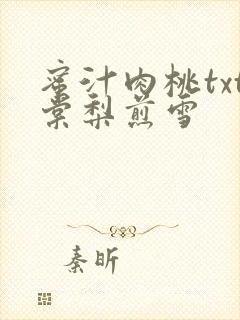 蜜汁肉桃txt
棠梨煎雪
秦昕